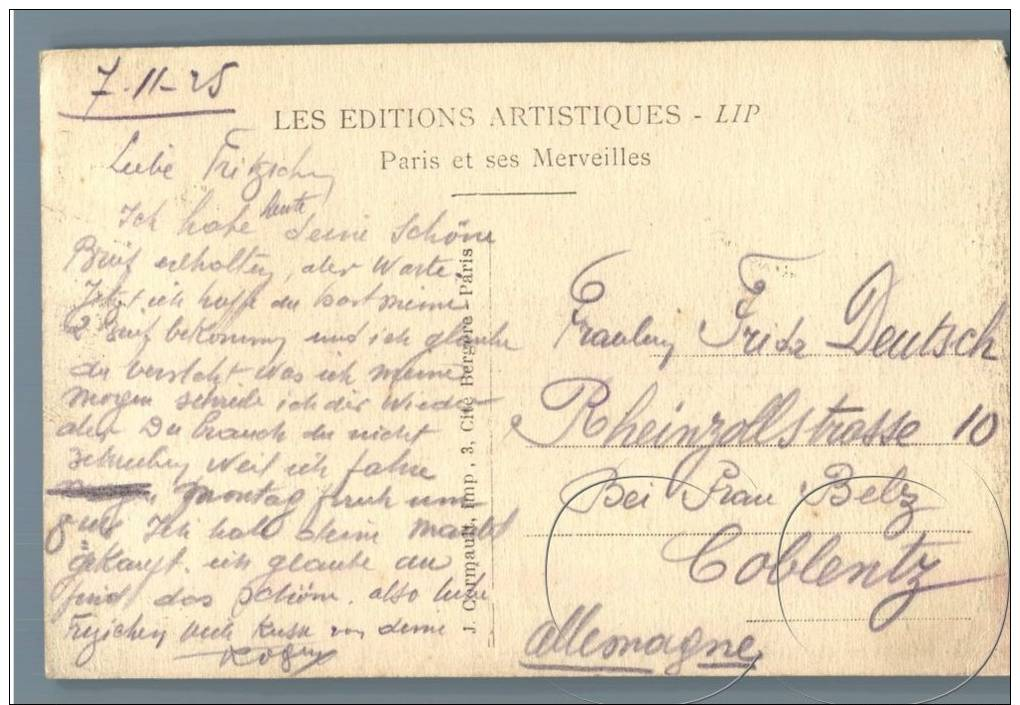 7-11-25
LES EDITIONS ARTISTIQUES - LIP
Paris et ses Merveilles
Liebe Fritzchen
Ich habe heute deine schöne
Brief erhalten, aber Warte
Jetzt ich hoffe du hast meine
2 Brief bekommen und ich glaube
du versteht was ich meine
Morgen schreibe ich dir wieder
aber Du brauch du nicht
schreiben weil ich fahre
Montag früh um
8 uhr Ich habe deine Mantel
gekauft. ich glaube du
find das schöne. also liebe
viele Kuss von deine
J. Cormault, Imp, 3, Cité Bergère - Paris
Fraulein Frida Deutsch
Rheinzollstrasse 10
Bei Frau Belz
Coblentz
Allemagne